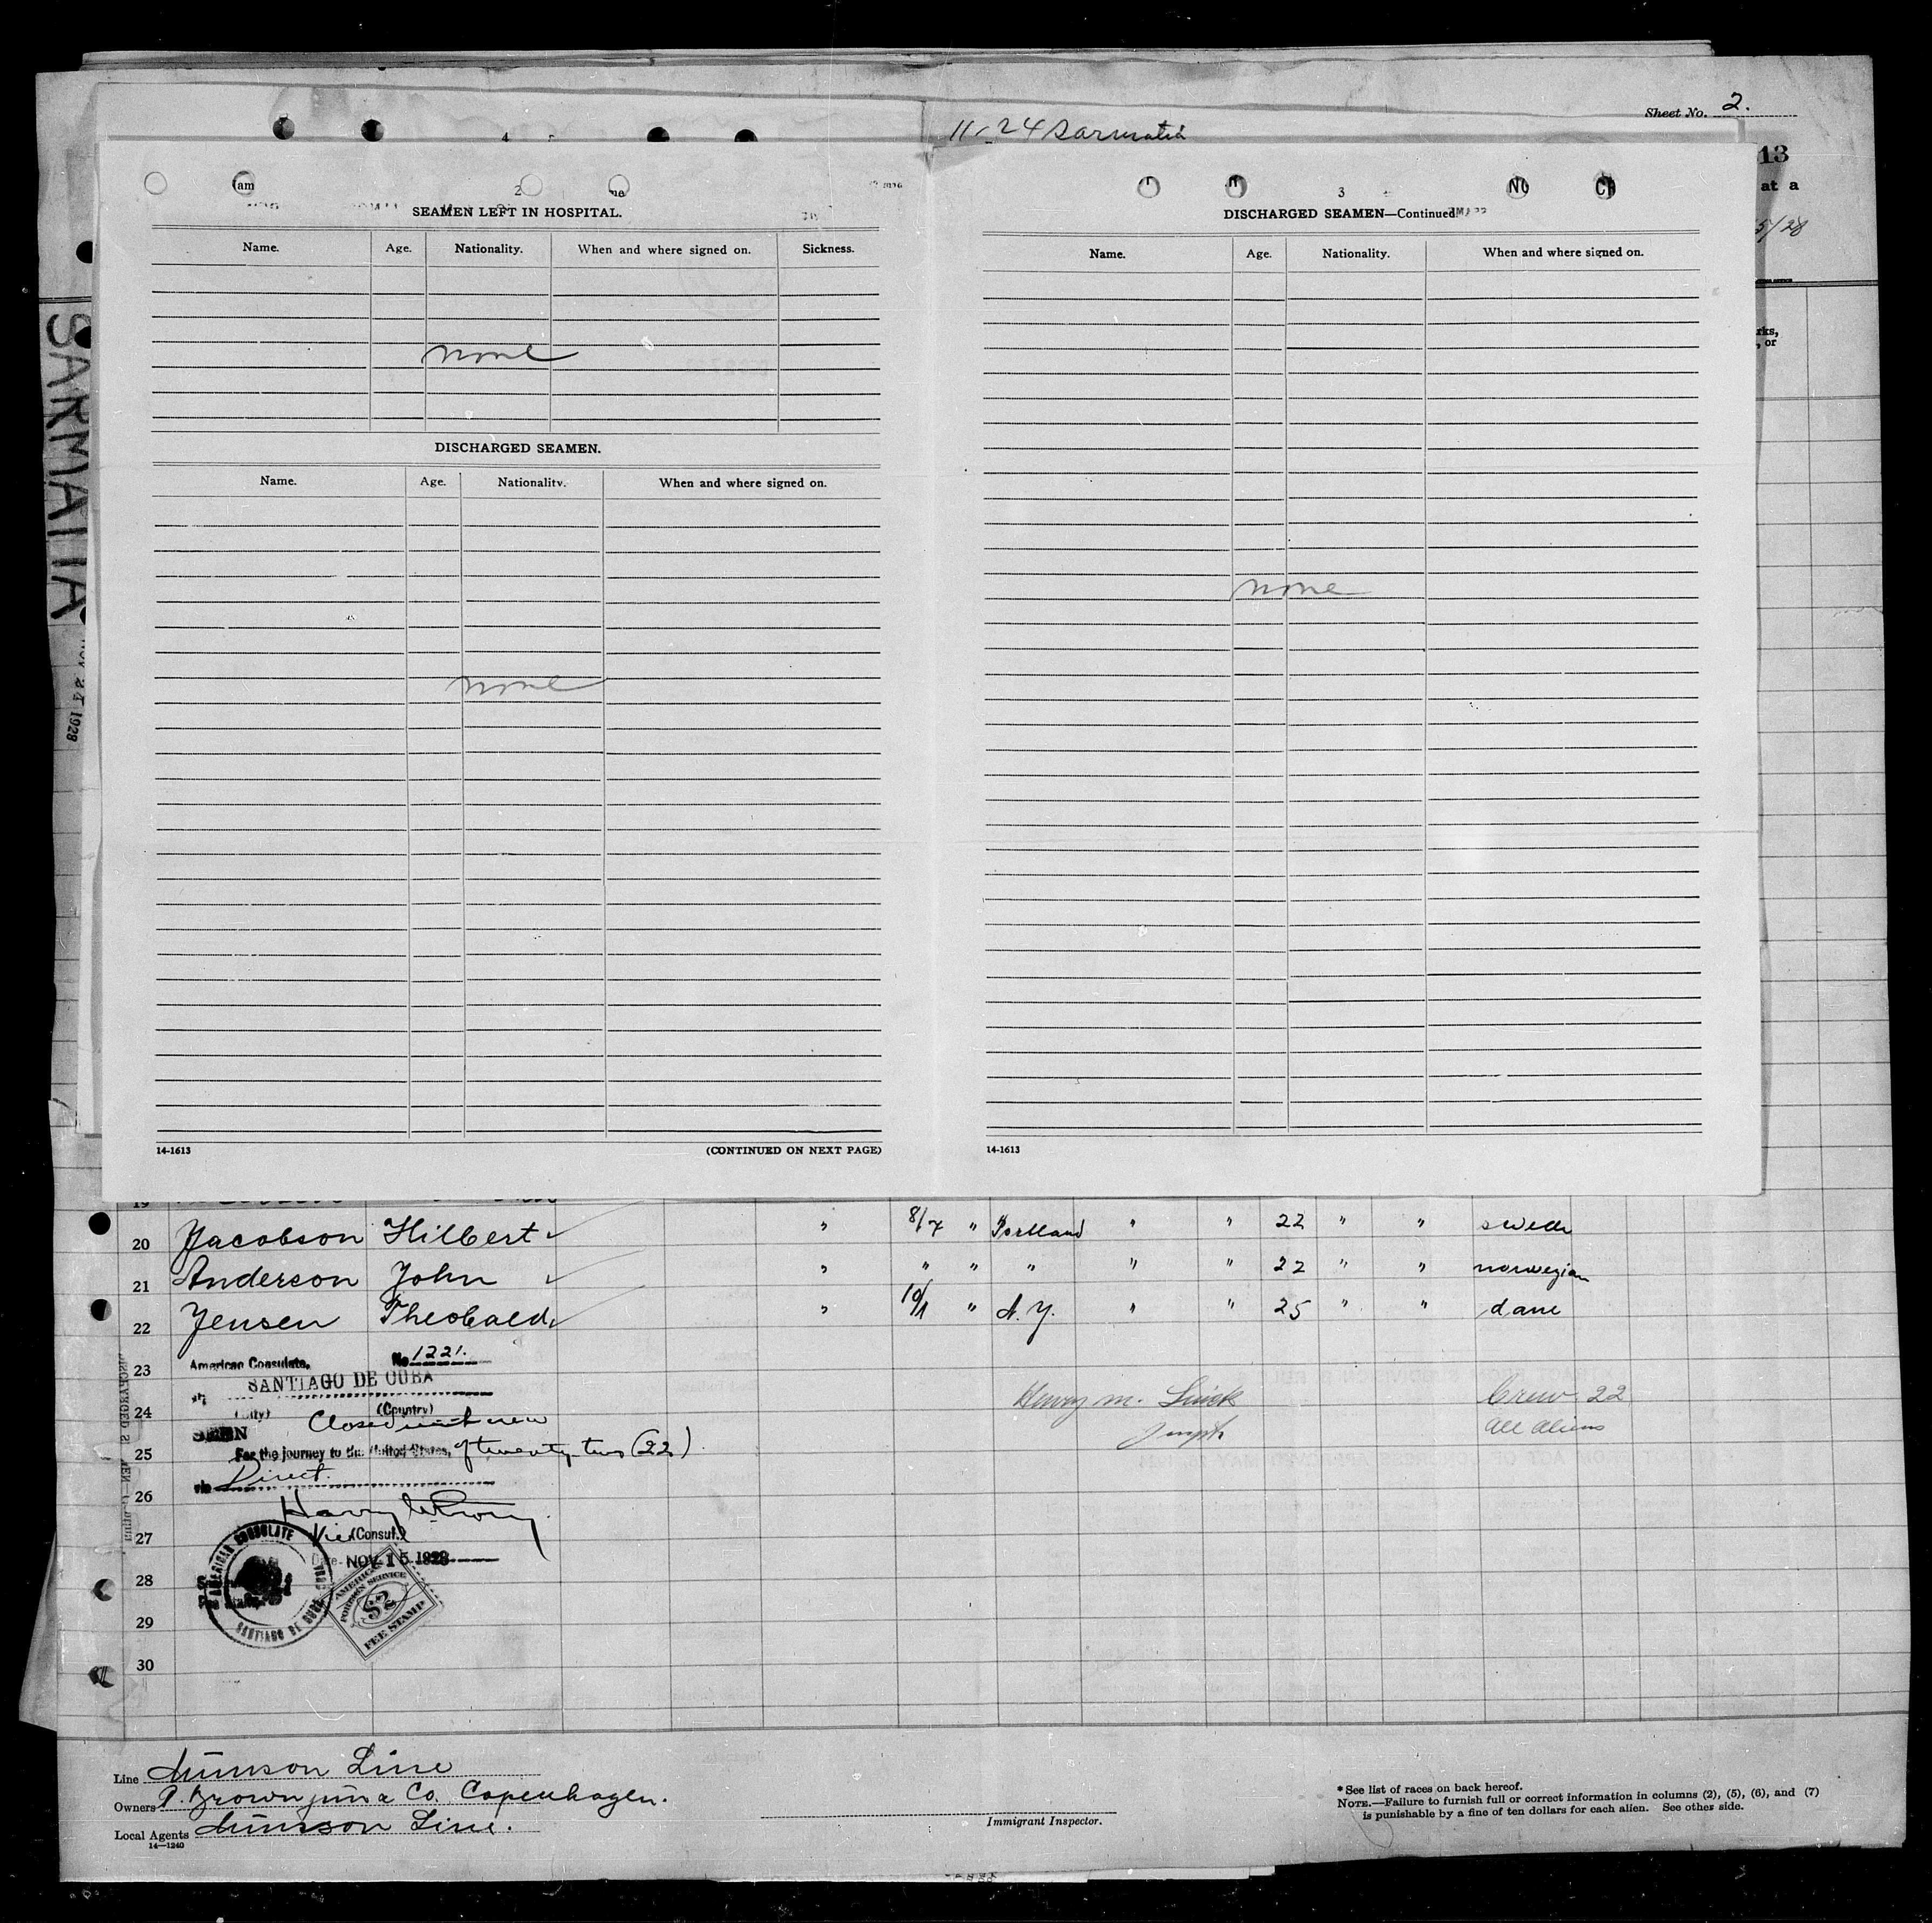 Sheet No. 2.
11-24 Sarmatia
13
at a
5/28
rks,
, or
SARMATIA
1928
2
SEAMEN LEFT IN HOSPITAL.
Name. Age. Nationality. When and where signed on. Sickness.
none
DISCHARGED SEAMEN.
Name. Age. Nationality. When and where signed on.
none
14-1613 (CONTINUED ON NEXT PAGE)
3
DISCHARGED SEAMEN—Continued.
Name. Age. Nationality. When and where signed on.
none
14-1613
19
20 Jacobson Hilbert " 8/7 " Portland " " 22 " " swede
21 Anderson John " " " " " " 22 " " norwegian
22 Jensen Theobald " 10/1 " N.Y. " " 25 " " dane
23 American Consulate, No 1221.
SANTIAGO DE CUBA
24 (City) (Country)
Closed crew
25 For the journey to the United States, of twenty-two (22)
via Direct.
26 Harry
27 Vice (Consul)
Date NOV 15 1928
28
29
30
AMERICAN CONSULATE
SANTIAGO DE CUBA
AMERICAN
FOREIGN SERVICE
$2
FEE STAMP
Henry M.
Crew 22
All Aliens
Line Munson Line
Owners A. Brown jun & Co. Copenhagen.
Local Agents Munson Line.
14—1240
Immigrant Inspector.
* See list of races on back hereof.
NOTE.—Failure to furnish full or correct information in columns (2), (5), (6), and (7)
is punishable by a fine of ten dollars for each alien. See other side.